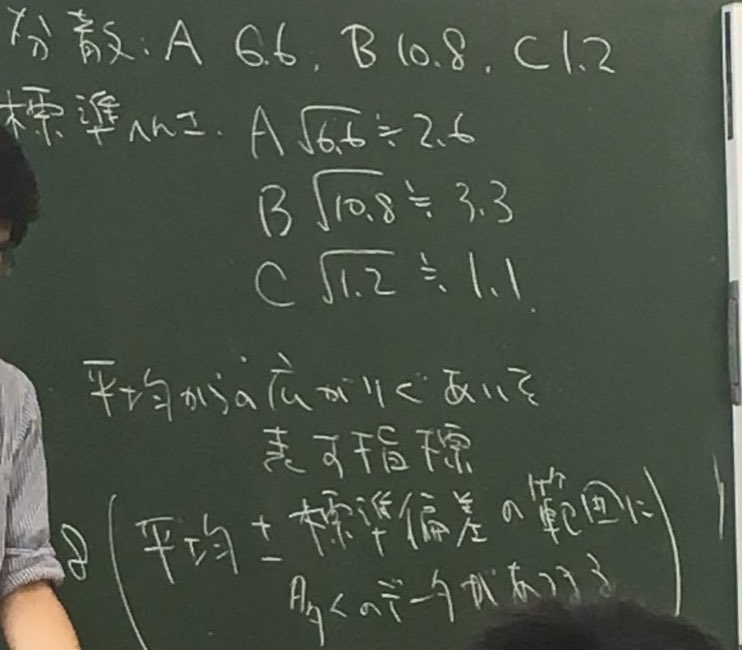 分散: A 6.6, B 10.8, C 1.2
標準へんさ. A √6.6 ≒ 2.6
B √10.8 ≒ 3.3
C √1.2 ≒ 1.1.
平均からの広がりぐあいを
表す指標
(平均 ± 標準偏差の範囲に
のデータがあつまる)